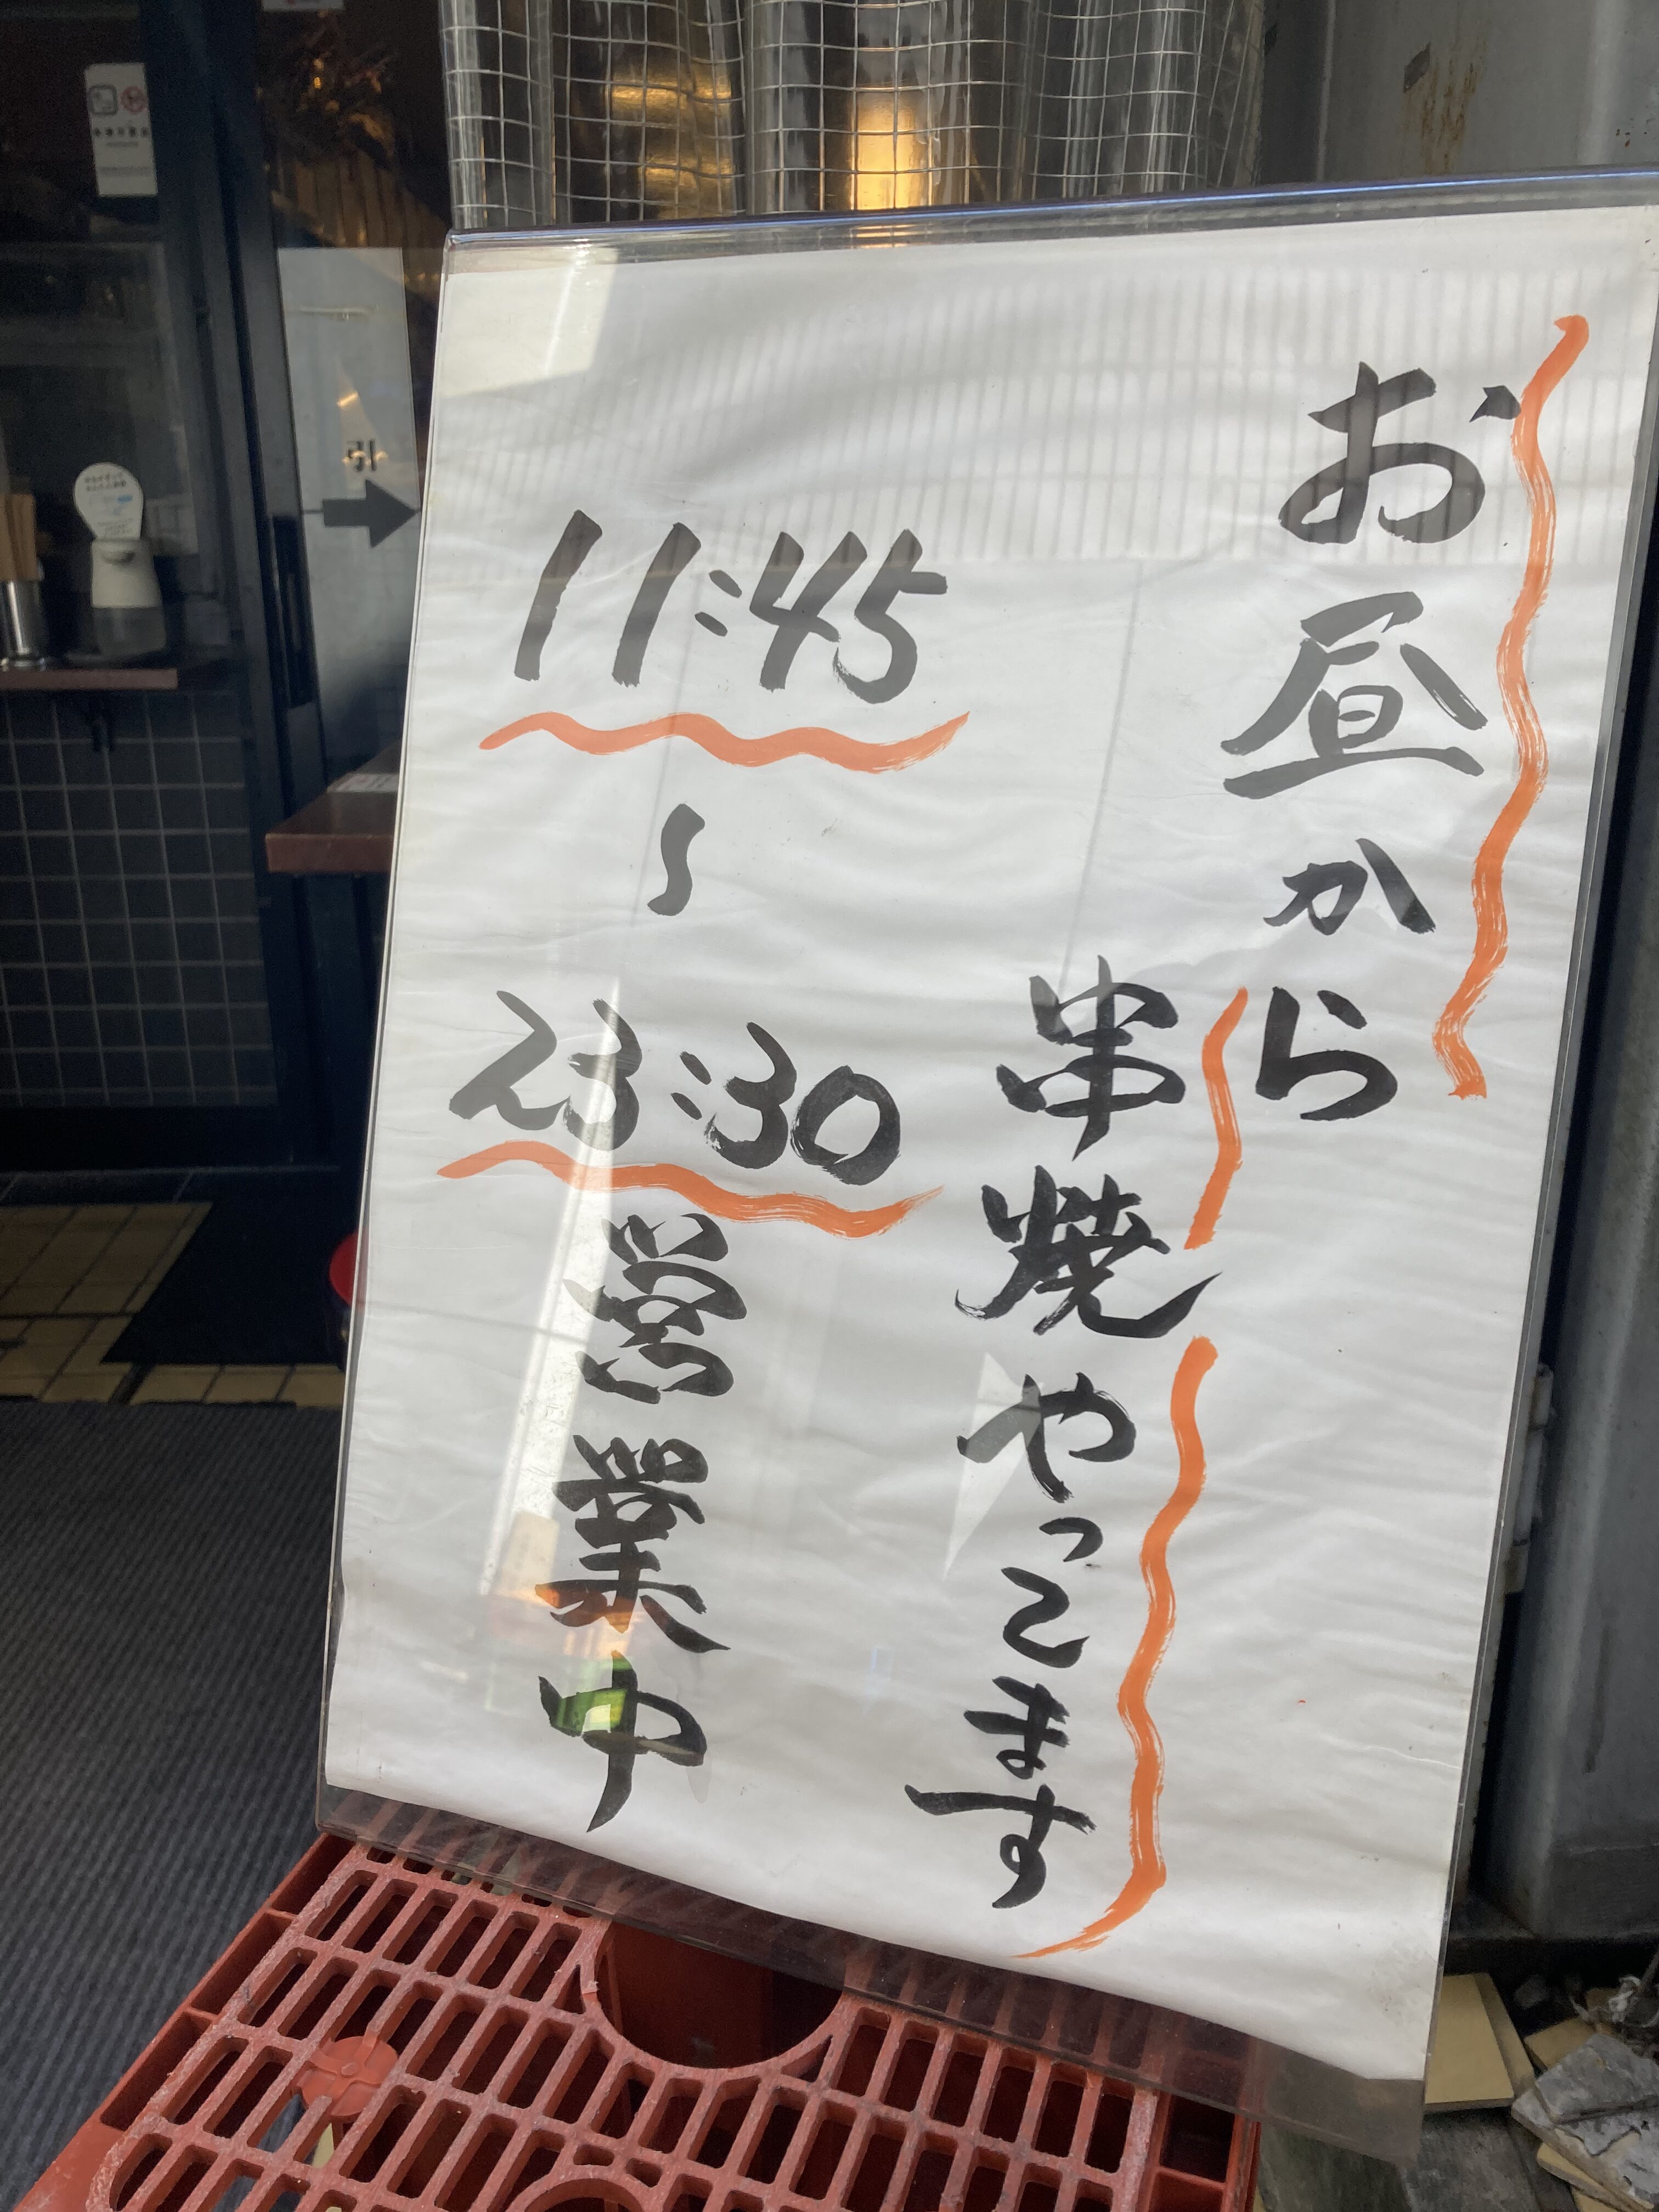 お昼から
串焼やってます
11:45
〜
23:30
営業中
引